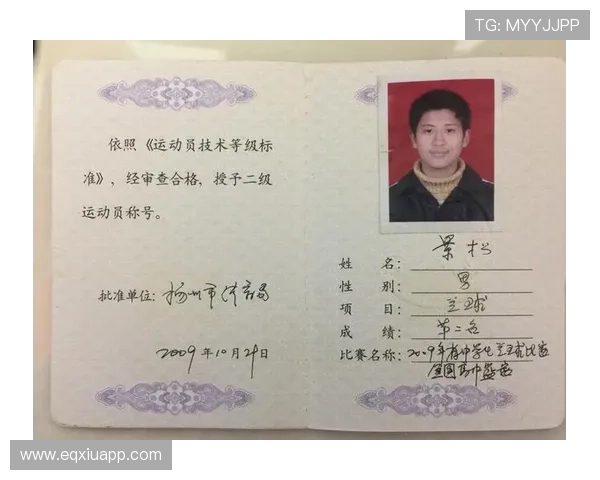 TG: MYYJJPP
依照《运动员技术等级标
准》，经审查合格，授予二级
运动员称号。
批准单位: 扬州市体育局
2009年10月29日
姓 名: 景松
性 别: 男
项 目: 足球
成 绩: 第二名
比赛名称: 2009年省中学生足球比赛
www.eqxiuapp.com